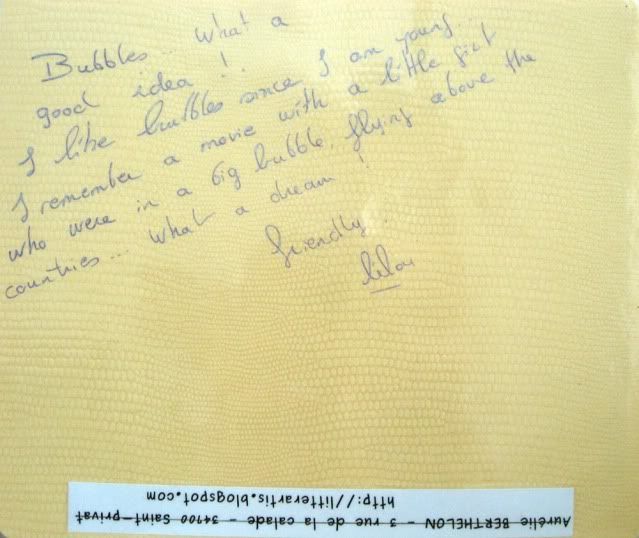 Bubbles... What a
good idea !
I like bubbles since I am young...
I remember a movie with a little girl
who were in a big bubble, flying above the
countries... What a dream !
friendly.
lilou
Aurélie BERTHELON - 3 rue de la calade - 34700 Saint-privat
http://litterartis.blogspot.com